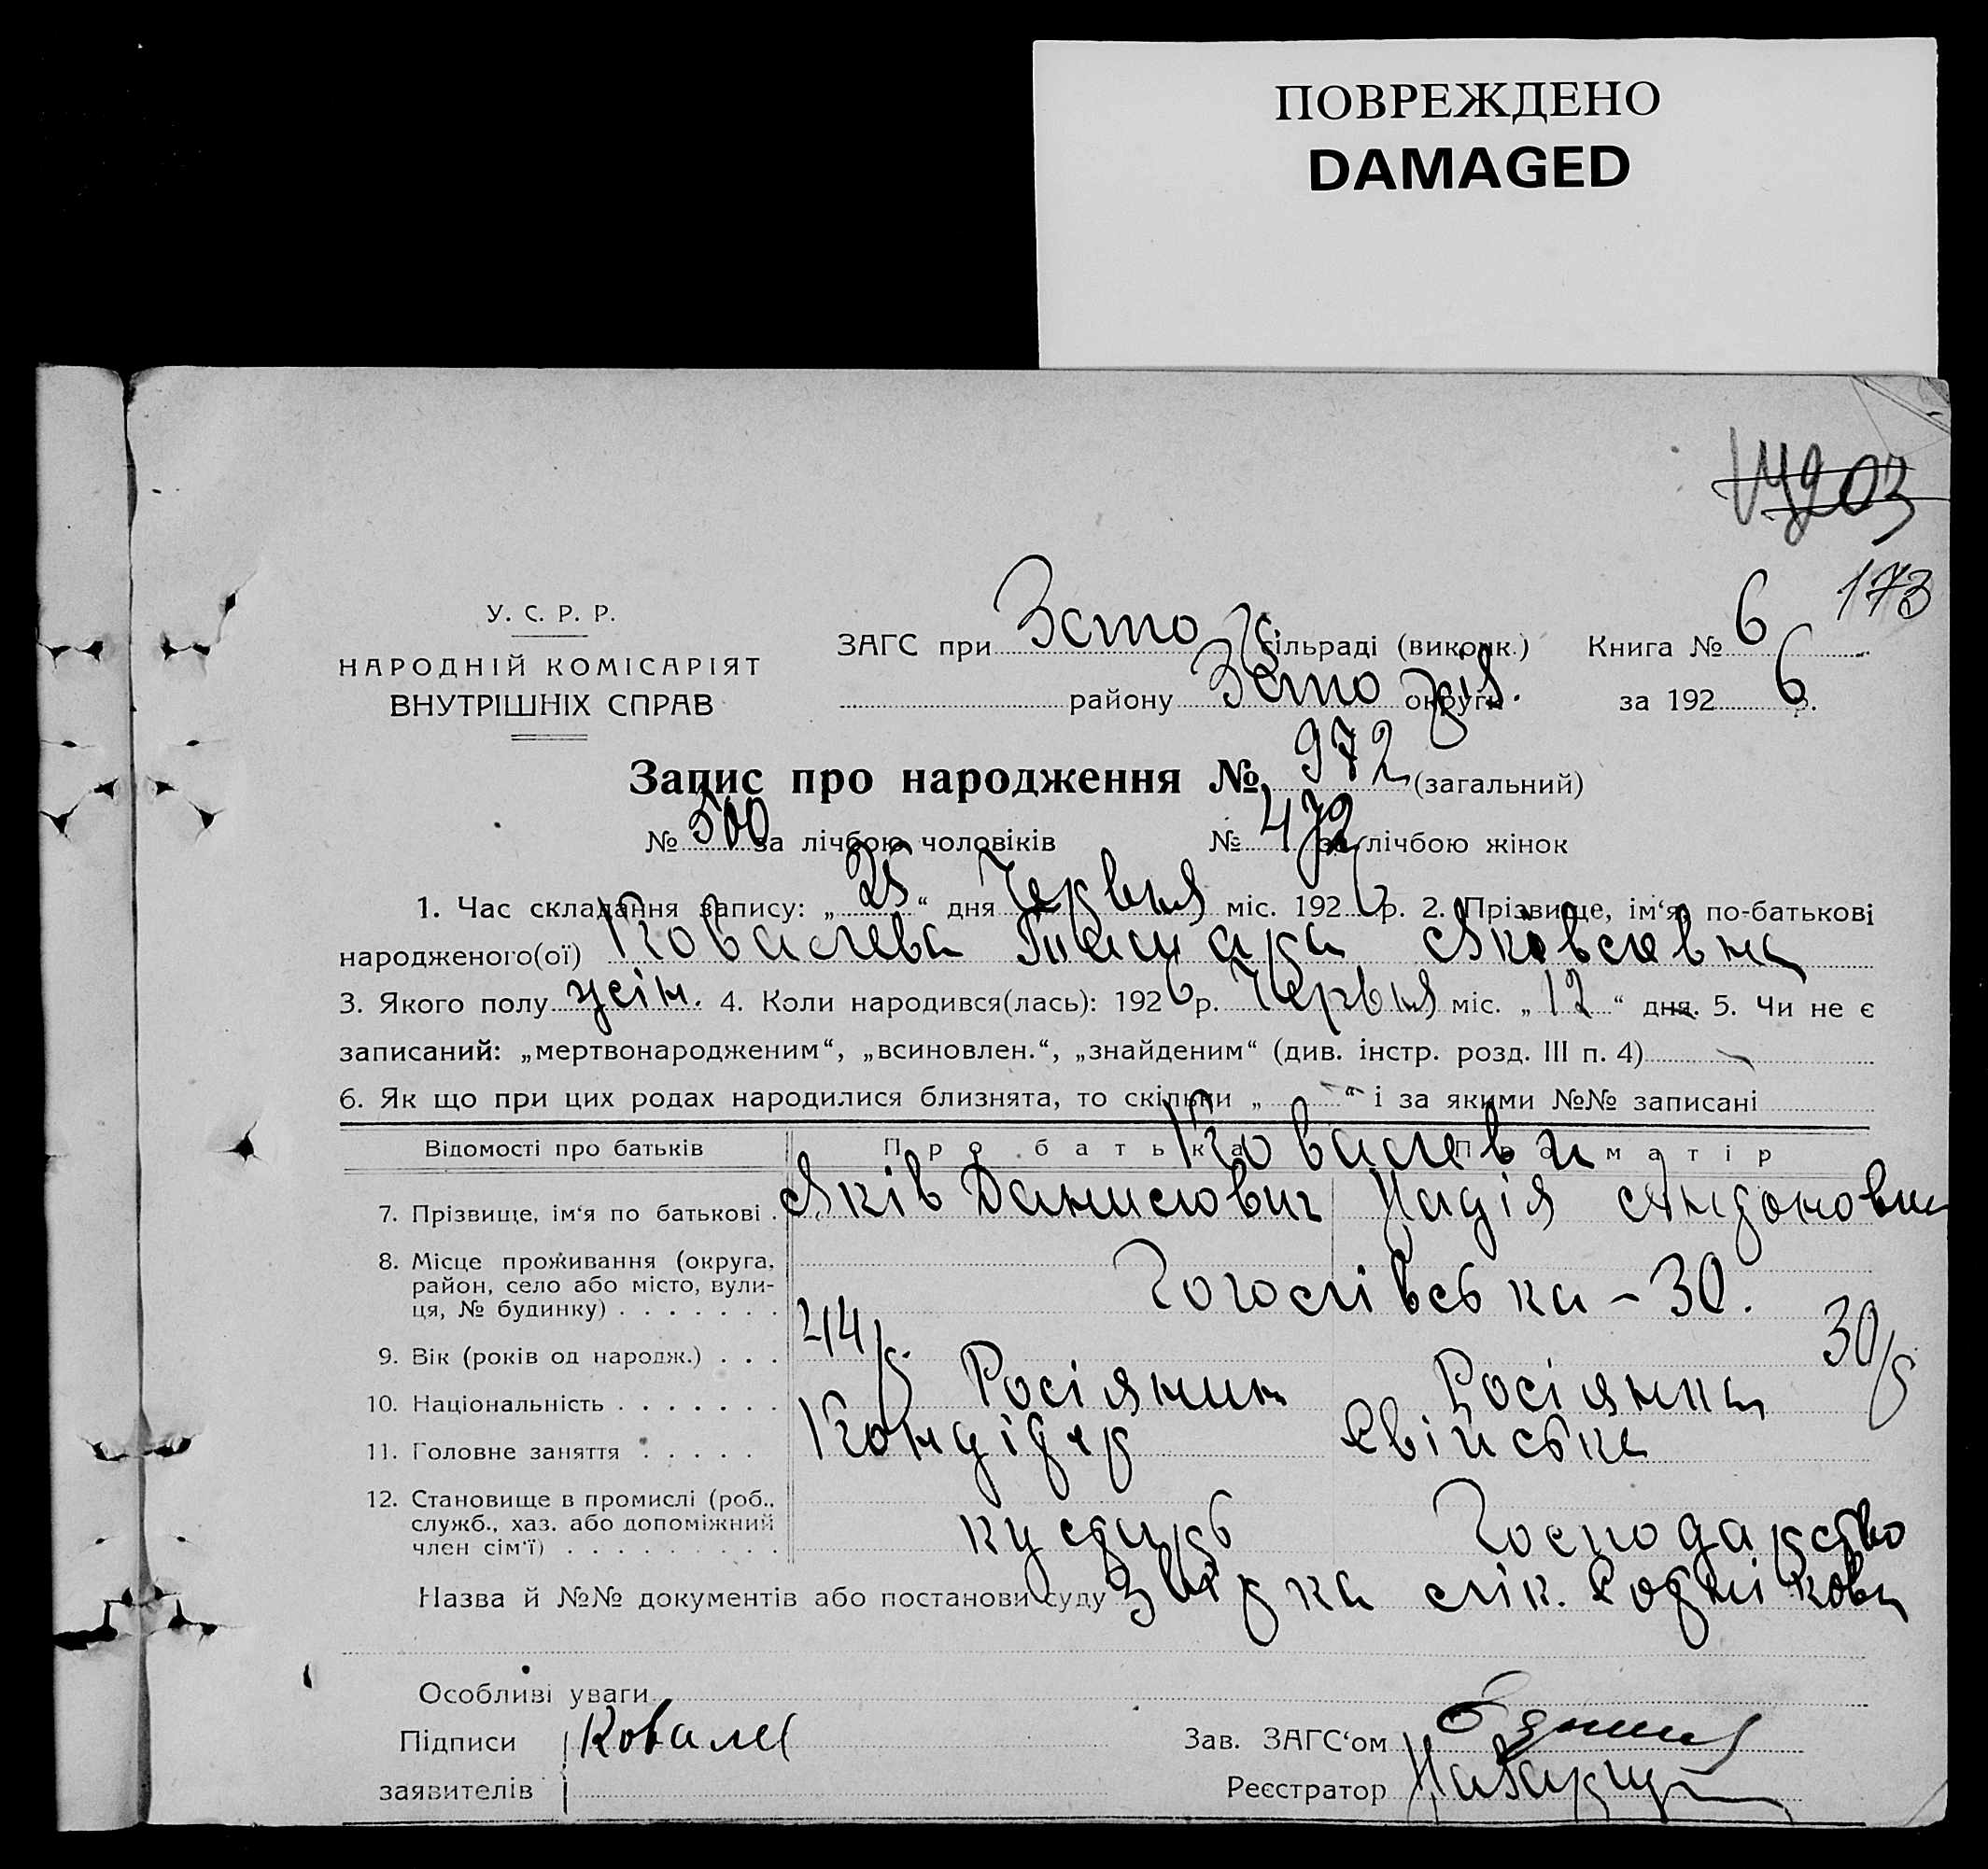 ПОВРЕЖДЕНО
DAMAGED
173
У. С. Р. Р.
НАРОДНІЙ КОМІСАРІЯТ
ВНУТРІШНІХ СПРАВ
ЗАГС при сільраді (виконк.) Книга № 6
району округи за 1926 р.
Запис про народження № 972 (загальний)
№ 500 за лічбою чоловіків № 472 за лічбою жінок
1. Час складання запису: „25“ дня Червня міс. 1926 р. 2. Прізвище, ім‘я, по-батькові
народженого(ої) Ковалева Тамара Яковлевна
3. Якого полу жін. 4. Коли народився(лась): 1926 р. Червня міс. „12“ дня. 5. Чи не є
записаний: „мертвонародженим“, „всиновлен.“, „знайденим“ (див. інстр. розд. III п. 4)
6. Як що при цих родах народилися близнята, то скільки „ “ і за якими №№ записані
Відомості про батьків Про батька Про матір
Ковалеви
7. Прізвище, ім‘я по батькові . Яків Данилович Надія
8. Місце проживання (округа, район, село або місто, вулиця, № будинку) . . . . . . . Гоголівська – 30.
9. Вік (років од народж.) . . . 44 р. 30 р
10. Національність . . . . . . . Росіянин Росіянка
11. Головне заняття . . . . . Свійська
12. Становище в промислі (роб., служб., хаз. або допоміжний член сім‘ї) . . . . . . . . . кустарь Господарство
Назва й №№ документів або постанови суду лік.
Особливі уваги
Підписи Ковалев Зав. ЗАГС‘ом
заявителів Реєстратор